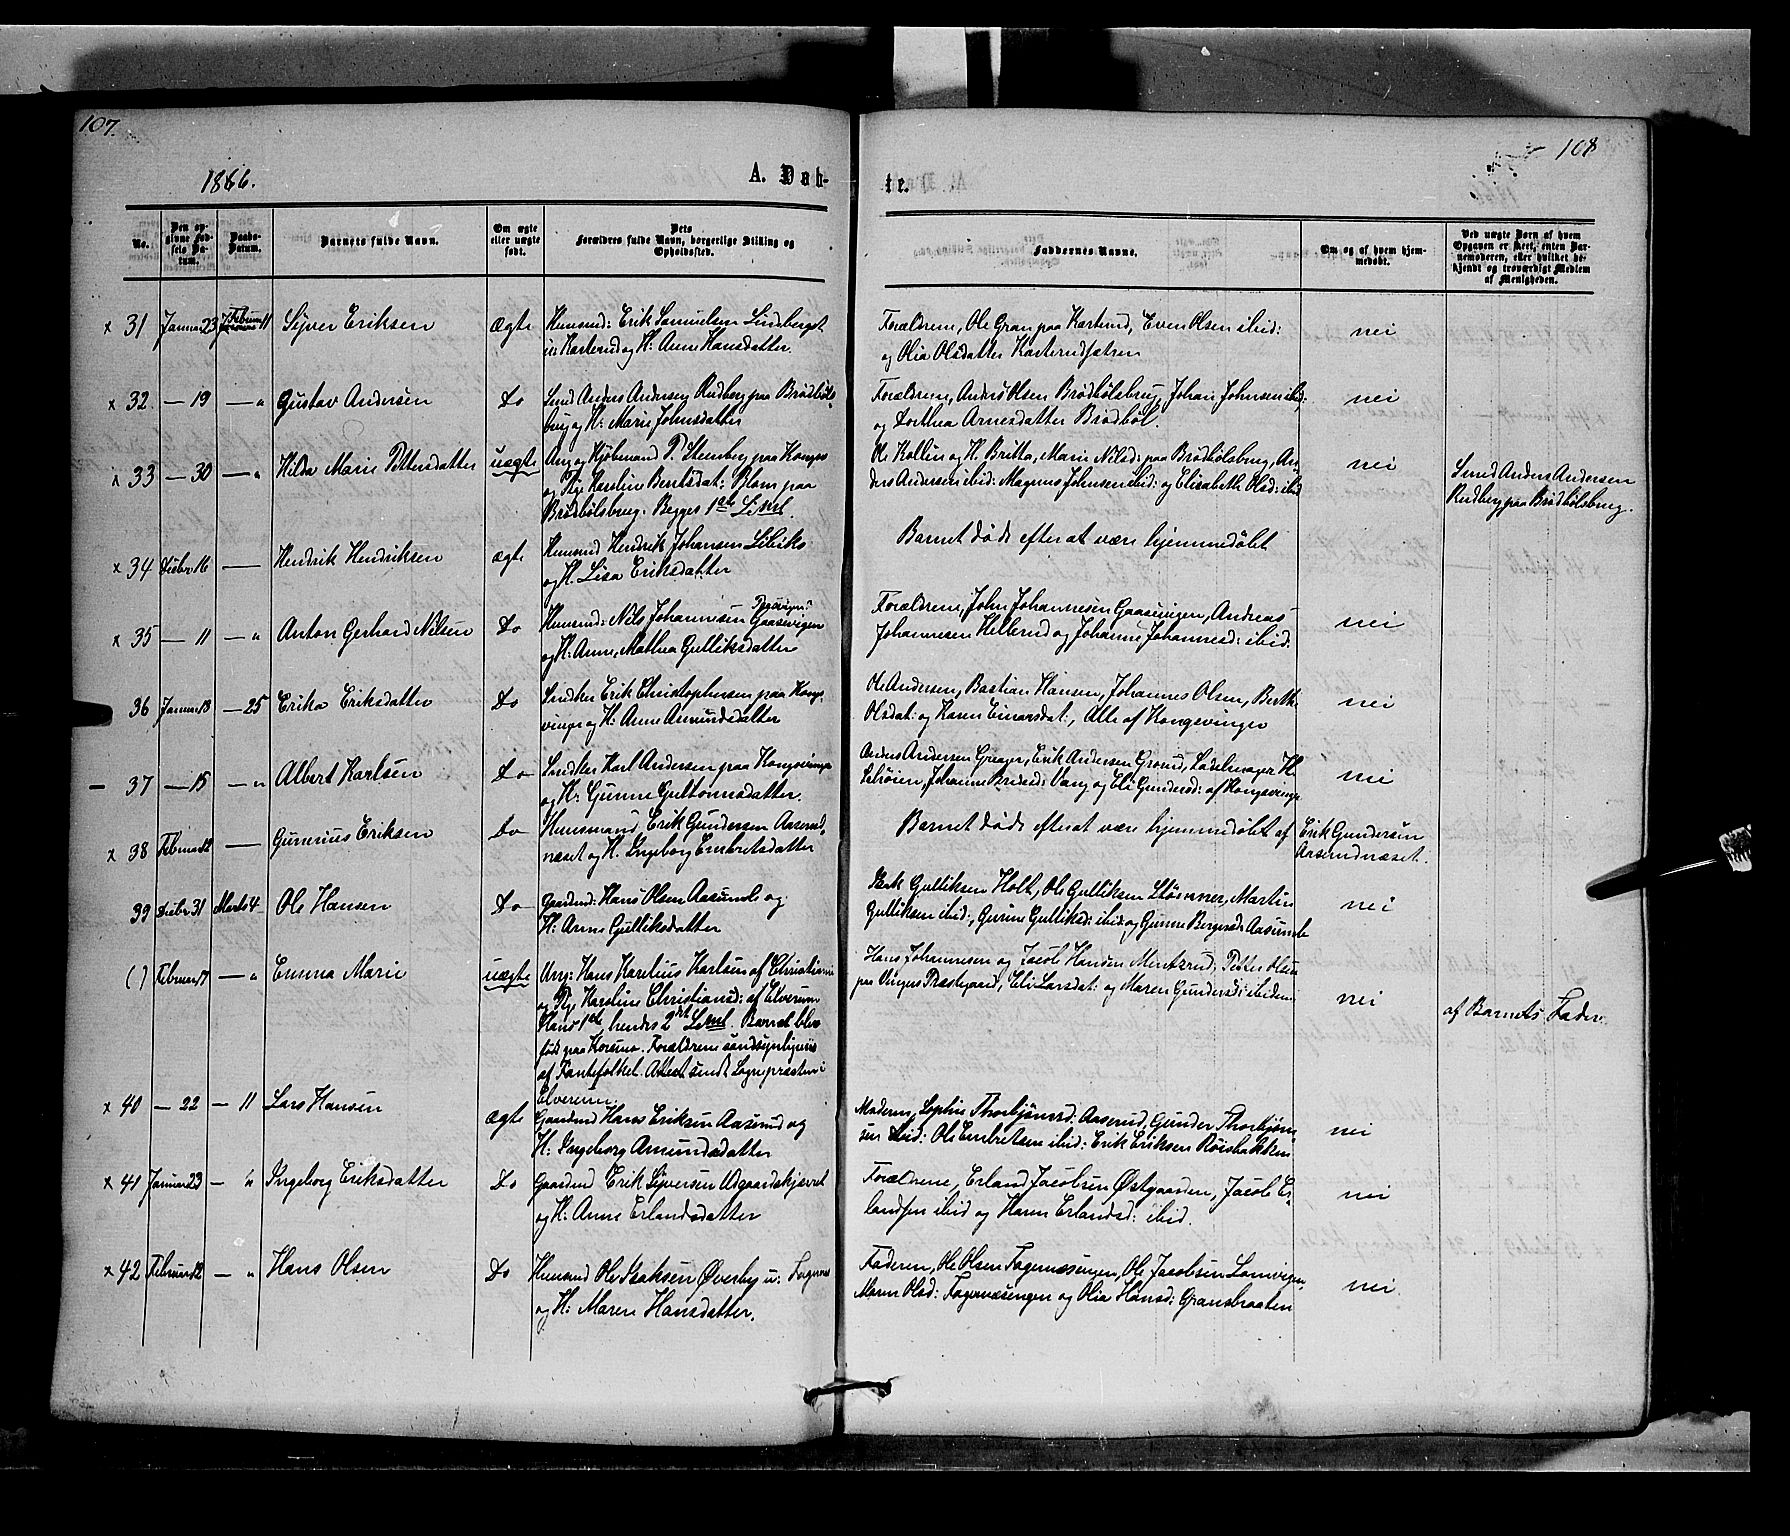 107.
108
1866.
A. Døb-
te.
No.
Den op-
givne Fød-
sels Da-
tum.
Daabs-
Datum.
Barnets fulde Navn.
Om ægte
eller uægte
født.
Dets
Forældres fulde Navn, borgerlige Stilling og
Opholdssted.
Faddernes Navne.
Om og af hvem hjem-
medøbt.
Ved uægte Børn af hvem
Opgaven er skeet, enten Bar-
nemoderen, eller hvilket be-
kjendt og troværdigt Medlem
af Menigheden.
x 31 Januar 23 Februar 11 Syver Eriksen ægte Husmd: Erik Samuelsen Lindberget
u: Kasterud og H: Anne Hansdatter.
Forældrene, Ole Gran paa Kasterud, Even Olsen ibid:
og Olia Olsdatter
nei
x 32. — 19 — " Gustav Andersen Do Smed Anders Andersen Rudberg paa Brødbøls-
brug og H: Marie Johnsdatter
Forældrene, Anders Olsen Brødbølsbrug, Johan Johnsen ibid:
og Dorthea Arnesdatter Brødbøl.
nei
x 33 — 30 — " Hilda Marie Pettersdatter uægte Ung og Kjøbmand P. Stenberg paa Kongsv
og Pige Karolin Bentsdat: Blom paa
Brødbølsbrug. Begges 1ste Lejml.
Ole Kollin og H. Britta, Marie Nilsd: paa Brødbølsbrug, An-
ders Andersen ibid: Magnus Johnsen ibid: og Elisabeth Olsd: ibid
nei
Smed Anders Andersen
Rudberg paa Brødbølsbrug.
x 34 Debr 16 — Hendrik Hendriksen ægte Husmd Hendrik Johansen
og H. Lisa Eriksdatter
Barnet døde efter at være hjemmedøbt
x 35 — 11 — " Anton Gerhard Nilsen Do Husmd: Nils Johannesen Gaasevigen
og H: Anne Mathea Gulliksdatter
Forældrene, John Johannesen Gaasevigen, Andreas
Johannesen Hellerud og Johanne Johannesd: ibid:
nei
36 Januar 13 — 25 Erika Eriksdatter Do Snedker Erik Christophersen paa Kongs-
vinger og H: Anne Amundsdatter
Ole Andersen, Bastian Hansen, Johannes Olsen, Berth.
Olsdat: og Karen Einarsdat:, Alle af Kongsvinger
nei
— 37 — 15 — " Albert Karlsen Do Snedker Karl Andersen paa Kongsvinger
og H: Gunne Guttormsdatter.
Anders Andersen Greager, Erik Andersen Grorud,
Johanne Vang og Eli Gundersd: af Kongsvinger
nei
x 38 Februar 12 — Gunerius Eriksen Do Husmand, Erik Gundersen Aaserud-
næset og H. Ingeborg Embretsdatter
Barnet døde efter at være hjemmedøbt af
Erik Gundersen
Aaserudnæset.
39 Debr 31 Marts 4 Ole Hansen Do Gaardmd: Hans Olsen Aasunde og
H: Anne Gulliksdatter
Erik Gulliksen Holt, Ole Gulliksen Støverner, Martin
Gulliksen ibid:, Gurine Gulliksd: ibid og Gunne Bergersd: Aasunde
nei
( ) Februar 17 — " Emma Marie uægte Ung: Hans Karelius Karlsen af Christiania
og Pige Karoline Christiansd: af Elverum
Hans 1ste, hendes 2det Lejml. Barnet blev
født paa Forældrene sandsynligviis
af Fantefolket. Attest sendt Sognepræsten i
Elverum.
Hans Johannesen og Jacob Hansen Mentzrud, Petter Olsen
paa Vinger Præstegaard, Eli Larsdat: og Maren Gundersd: ibidem
nei
af Barnets Fader.
x 40 — 22 — 11 Lars Hansen ægte Gaardmd Hans Eriksen Aaserud og
H: Ingeborg Amundsdatter
Moderen, Sophie Thorbjørnsd: Aaserud, Gunder Thorbjørn-
sen ibid: Ole Embretsen ibid: Erik Eriksen Røisbakken
nei
x 41 Januar 23 — " Ingeborg Eriksdatter Do Gaardmd Erik Syversen Udgaardskjæret
og H: Anne Erlandsdatter
Forældrene, Erland Jacobsen Østgaarden, Jacob Er-
landsen ibid og Karen Erlandsd: ibid.
nei
x 42 Februar 12 — " Hans Olsen Do Husmd Ole Isaksen Øverby u: Fagernes
og H: Maren Hansdatter.
Faderen, Ole Olsen Fagernæsengen, Ole Jacobsen Lomvigen,
Maren Olsd: Fagernæsengen og Olia Hansd: Gransbraaten
nei.